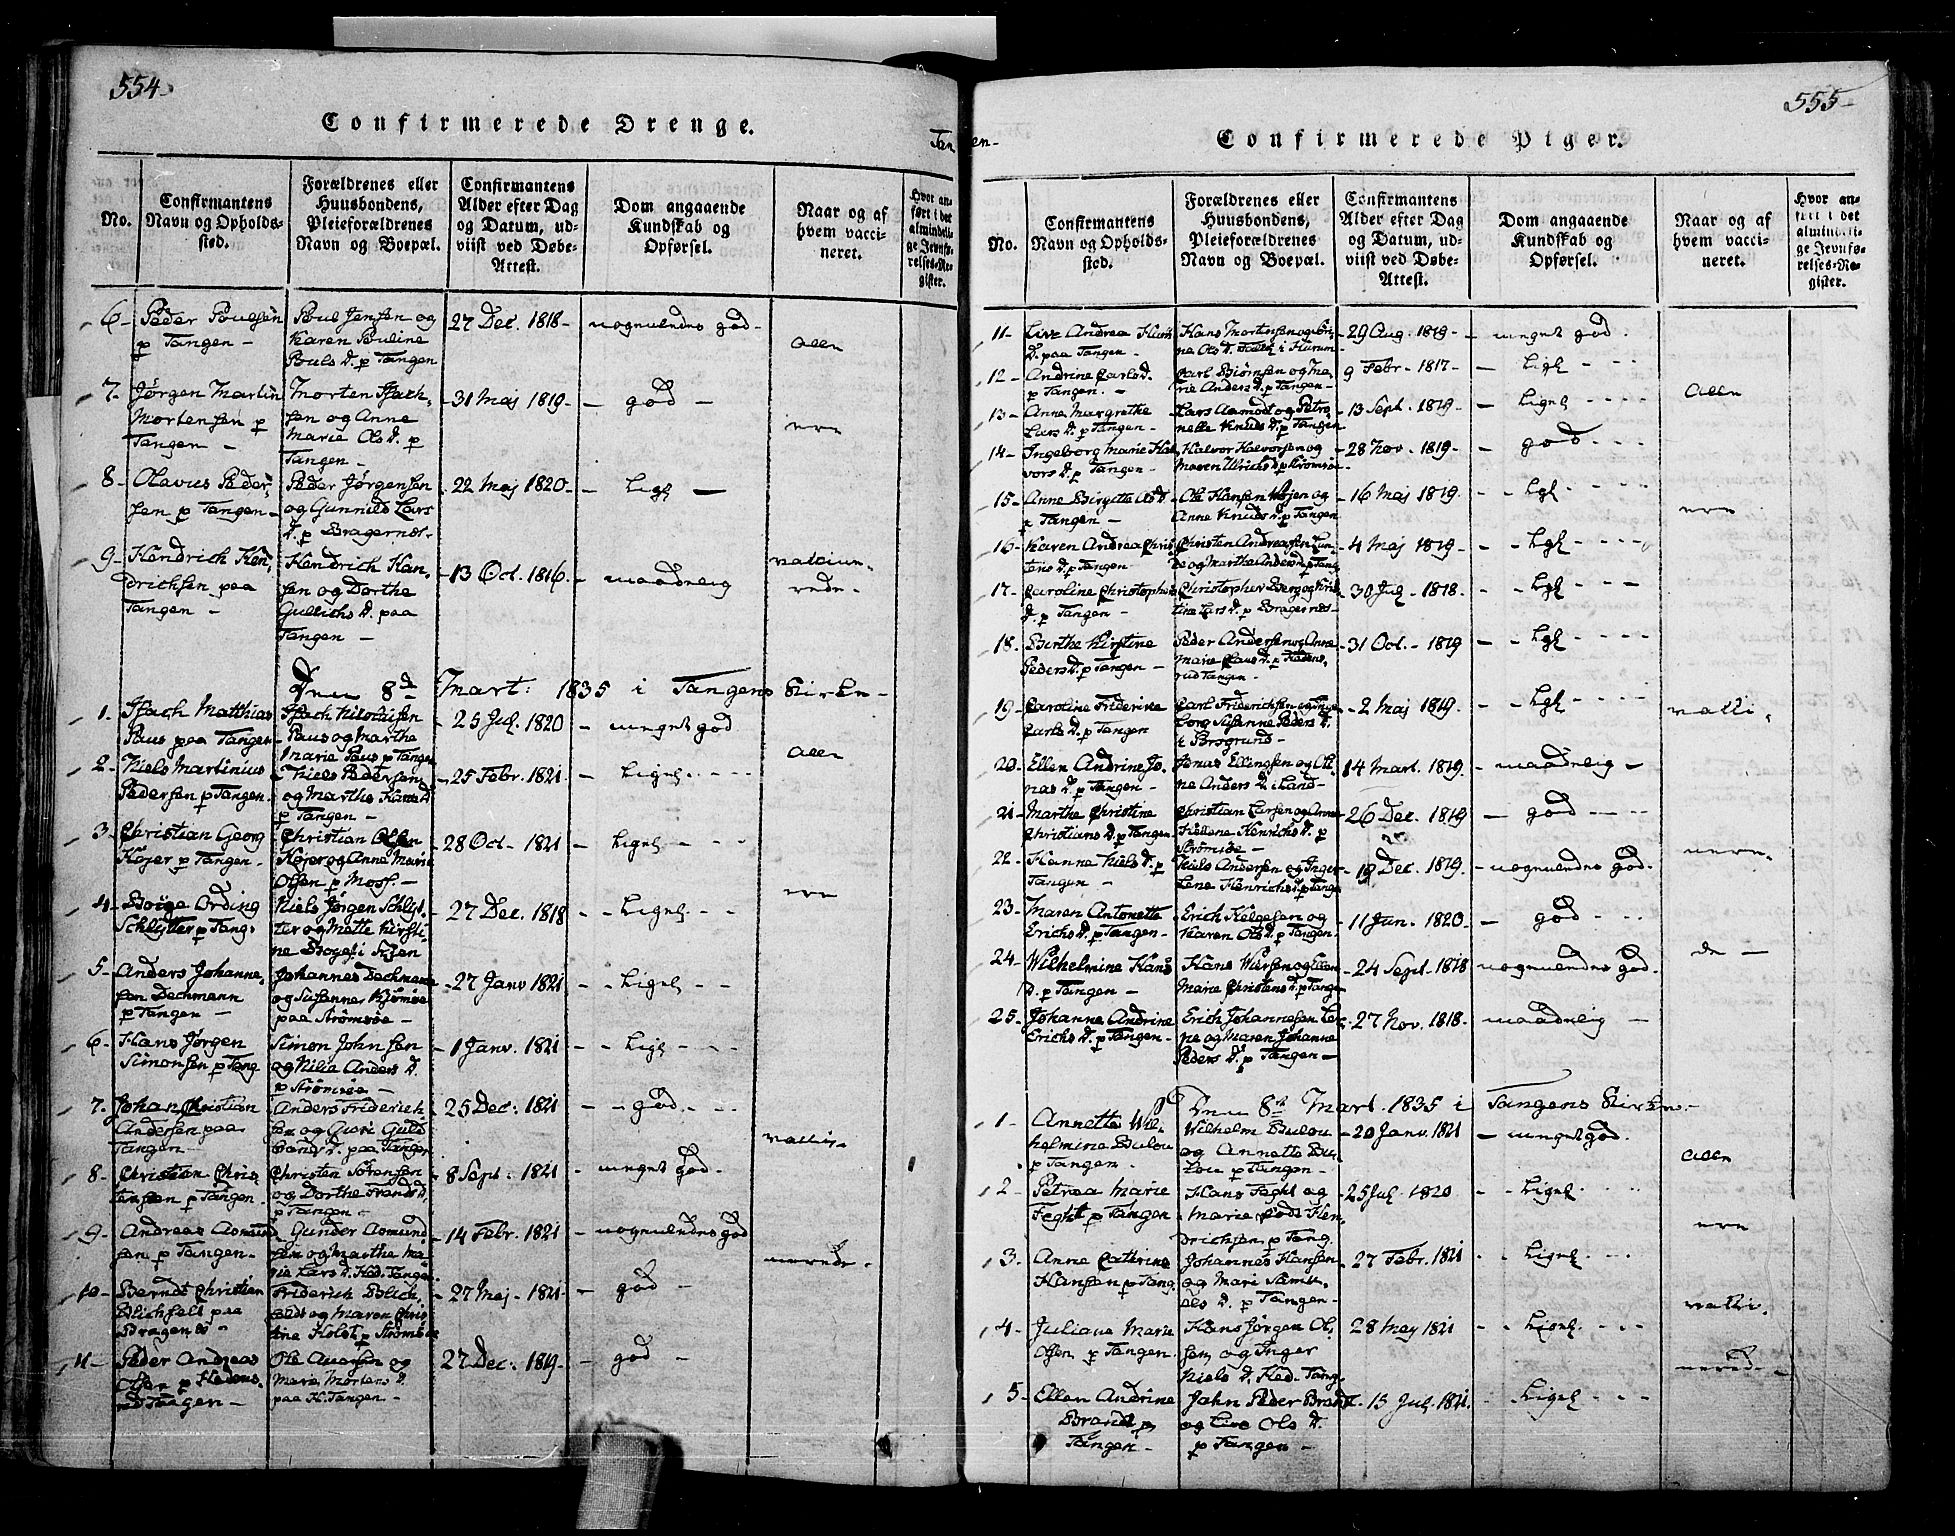 554.
Confirmerede Drenge.
No.
Confirmantens
Navn og Opholds-
sted.
Forældrenes eller
Huusbondens,
Pleieforældrenes
Navn og Boepæl.
Confirmantens
Alder efter Dag
og Datum, ud-
viist ved Døbe-
Attest.
Dom angaaende
Kundskab og
Opførsel.
Naar og af
hvem vacci-
neret.
Hvor an-
ført i det
almindeli-
ge Jevnfø-
relses-Re-
gister.
6- Peder Poulsen
p Tangen -
Poul Jensen og
Karen Pouline
Pouls D. p Tangen
27 Dec. 1818-
7- Jørgen Martin
Mortensen p
Tangen -
Morten Isach,
sen og Anne
Marie Ols D. p
Tangen -
31 Maj 1819- - god -
8- Olavus Peder,
sen p Tangen -
Peder Jørgensen
og Gunnild Lars
D. p Bragernæs.
22 Maj 1820- - Lige -
9- Hendrich Hen,
drichsen paa
Tangen -
Hendrich Han,
sen og Dorthe
Gullichs D. paa
Tangen -
13 Oct. 1816. - maadelig
Allen
ere
vaccine,
rede-
Den 8de Mart: 1835 i Tangens Kirke-
1. Isach Matthias
Paus paa Tangen -
Isach Nicolaisen
Paus og Marthe
Marie Paus p Tangen
25 Jul. 1820 - meget god
2- Niels Martinius
Pedersen p Tangen-
Niels Pedersen
og Marthe Hans D
p Tangen -
25 Febr. 1821 - Ligel. - - -
3- Christian Georg
Højer p Tangen -
Christian Olsen
Højer og Anne Marie
Olsen p Moss. -
28 Oct - 1821 - Ligel - - -
4- Boije Ording
Schlytter p Tang,
Niels Jørgen Schlyt,
ter og Mette Kirsti,
ne Boyes i Krøen
27 Dec. 1818 - - Ligel - -
5- Anders Johanne,
sen Dechmann
p Tangen -
Johannes Dechmann
og Susanne Kiømøe
paa Strømsøe -
27 Janv 1821 - - Ligel - -
6- Hans Jørgen
Simonsen p Tang
Simon Johnsen
og Nilia Anders D.
p Strømsøe -
1 Janv. 1821 - - Ligl - - -
7. Johan Christian
Andersen paa
Tangen -
Anders Friderich
sen og Guri Guld
brands D. paa Tangen
25 Dec: 1821 - - god - - -
8- Christian Chris
tensen p Tangen -
Christen Sørensen
og Dorthe Frands D
p Tangen -
8 Sept: 1821 - meget god -
9- Andreas Asmund
sen p Tangen -
Gunder Asmund,
sen og Marthe Ma,
rie Lars D. Hed. Tangen
14 Febr. 1821
10- Berndt Christian
Blichfelt paa
Bragernæs -
Friderich Blich
feldt og Maren Chris
tine Holst p Strømsøe
27 Maj - 1821 - god -
11- Peder Andreas
Olsen p Hedens,
rud Tangen -
Ole Auensen og
Marie Mortens D.
paa H. Tangen -
27 Dec: 1819 - god -
Allen
ere
vacci,
nerede-
555-
Confirmerede Piger.
No.
Confirmantens
Navn og Opholds-
sted.
Forældrenes eller
Huusbondens,
Pleieforældrenes
Navn og Boepæl.
Confirmantens
Alder efter Dag
og Datum, ud-
viist ved Døbe-
Attest.
Dom angaaende
Kundskab og
Opførsel.
Naar og af
hvem vacci-
neret.
Hvor an-
ført i det
almindeli-
ge Jevnfø-
relses-Re-
gister.
11- Live Andrea Hans
D. paa Tangen -
Hans Mortensen og
ne Ols D. i Hurum
29 Aug. 1819 - meget god.
12- Andrine Carls D.
p Tangen. -
Carl Biørnsen og Ma,
rie Anders D. p Tangen -
9 Febr- 1817- - Ligl - - -
13- Anne Margrethe
Lars D. p Tangen -
Lars Aamodt og Petro
nelle Knuds D. p Tangen
13 Sept. 1819 - - Ligel - - - -
14- Ingeborg Marie Hal
vors D. p Tangen -
Halvor Halvorsen og
Maren Ulrichs D p Strømsøe
28 Nov. 1819- - god - - -
15- Anne Birgitte Ols D
p Tangen -
Ole Hansen Højen og
Anne Knuds D. p Tangen
16 Maj 1819. - - Lgl - - - -
16- Karen Andrea Chris
tens D. p Tangen -
Christen Andreasen Lun
de og Marthe Anders D p Tang
4 Maj 1819 - - Lgl - - - -
17- Caroline Christophers
D. p Tangen -
Christopher Berg og Kris
tine Lars D. p Bragernæs -
30 Jul. 1818. - - Lgl - - -
18- Birthe Kirstine
Peders D. p Tangen -
Peder Andersen og Anne
Marie Claus D. p Hedens,
rud Tangen
31 Oct. - 1819 - - Lgl - - - -
19- Caroline Friderine
Carls D. p Tangen
Carl Friderichsen og Inge
borg Susanne Peders D.
i Porsgrund -
2 Maj 1819. - - Lgl - - - -
20- Ellen Andrine Jo,
nas D. p Tangen -
Jonas Ellingsen og Ol,
ne Anders D. i Land -
14 Mart. 1819. - maadelig -
21- Marthe Christine
Christians D. p Tangen -
Christian Larsen og Anne
Hellene Henrichs D. p
Strømsøe -
26 Dec. 1819 - god - - -
22- Hanne Niels D. p
Tangen -
Niels Andersen og Inger
Lene Henrichs D. p Tangen
19 Dec. 1819.
23- Maren Antonette
Erichs D. p Tangen -
Erich Helgesen og
Karen Ols D. p Tangen.
11 Jun. 1820 - god - - -
24- Wilhelmine Hans
D. p Tangen -
Hans Wersen og Karen
Marie Christens D. p Tangen
24 Sept. 1818
25- Johanne Andrine
Erichs D. p Tangen -
Erich Johannesen
og Maren Johanne
Peders D. p Tangen -
27 Nov. 1818 - maadelig -
Allen
ere
vacci,
nere,
de -
Den 8de Mart. 1835 i Tangens Kirke -
1- Annette Wil,
helmine Bulou
p Tangen -
Wilhelm Bulou
og Annette Bu,
lou p Tangen -
20 Janv. 1821 - meget god.
2- Petrea Marie
Feght p Tangen
Hans Feght og
Marie Hen,
drichsen p Tang.
25 Jul. 1820 - - Ligel - - -
3- Anne Cathrine
Hansen p Tang,
Johannes Hansen
og Mari Samu,
els D. p Tangen -
27 Febr. 1821 - - Ligel - -
4- Juliane Marie
Olsen p Tangen.
Hans Jørgen Ol,
sen og Inger
Niels D. Hed. Tang.
28 Maj 1821 - - Ligel - - -
5- Ellen Andrine
Brandt p
Tangen -
John Peder Brandt
og Live Ols D.
p Tangen -
15 Jul. 1821. - Ligel - - -
Allen
ere
vacci,
nerede -